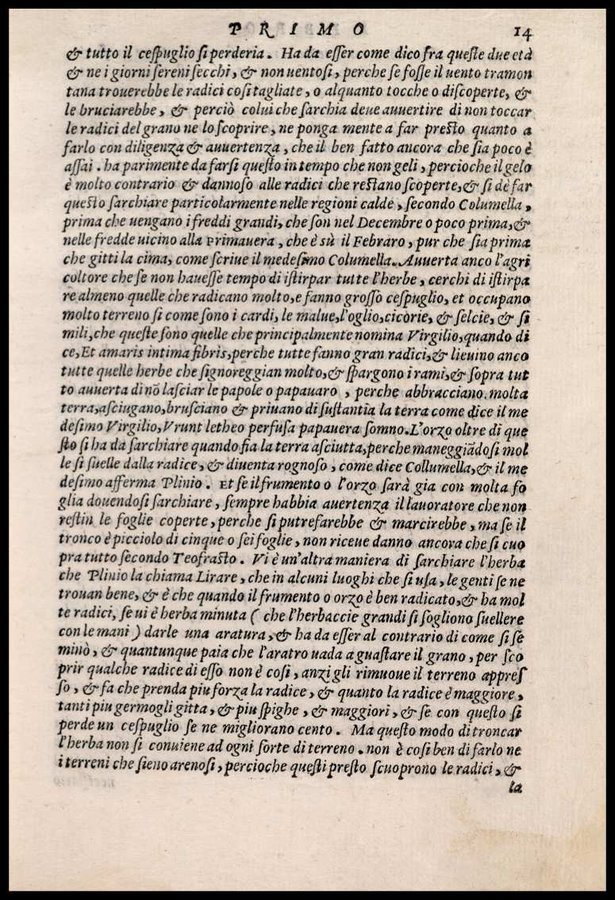 PRIMO 14
& tutto il cespuglio si perderia. Ha da esser come dico fra queste due età
& ne i giorni sereni secchi, & non uentosi, perche se fosse il uento tramon
tana trouerebbe le radici cosi tagliate, o alquanto tocche o discoperte, &
le bruciarebbe, & perciò colui che sarchia deue auuertire di non toccar
le radici del grano ne lo scoprire, ne ponga mente a far presto quanto a
farlo con diligenza & auuertenza, che il ben fatto ancora che sia poco è
assai. ha parimente da farsi questo in tempo che non geli, percioche il gelo
è molto contrario & dannoso alle radici che restano scoperte, & si de far
questo sarchiare particolarmente nelle regioni calde, secondo Columella,
prima che uengano i freddi grandi, che son nel Decembre o poco prima, &
nelle fredde uicino alla Primauera, che è sù il Febraro, pur che sia prima
che gitti la cima, come scriue il medesimo Columella. Auuerta anco l'agri
coltore che se non hauesse tempo di istirpar tutte l'herbe, cerchi di istirpa
re almeno quelle che radicano molto, e fanno grosso cespuglio, et occupano
molto terreno si come sono i cardi, le malue, l'oglio, cicorie, & selcie, & si
mili, che queste sono quelle che principalmente nomina Virgilio, quando di
ce, Et amaris intima fibris, perche tutte fanno gran radici, & lieuino anco
tutte quelle herbe che signoreggian molto, & spargono i rami, & sopra tut
to auuerta di nõ lasciar le papole o papauaro, perche abbracciano molta
terra, asciugano, brusciano & priuano di sustantia la terra come dice il me
desimo Virgilio, Vrunt letheo perfusa papauera somno. L'orzo oltre di que
sto si ha da sarchiare quando sia la terra asciutta, perche maneggiãdosi mol
le si suelle dalla radice, & diuenta rognoso, come dice Collumella, & il me
desimo afferma Plinio. Et se il frumento o l'orzo sarà gia con molta fo
glia douendosi sarchiare, sempre habbia auertenza il lauoratore che non
restin le foglie coperte, perche si putrefarebbe & marcirebbe, ma se il
tronco è picciolo di cinque o sei foglie, non riceue danno ancora che si cuo
pra tutto secondo Teofrasto. Vi è un'altra maniera di sarchiare l'herba
che Plinio la chiama Lirare, che in alcuni luoghi che si usa, le genti se ne
trouan bene, & è che quando il frumento o orzo è ben radicato, & ha mol
te radici, se ui è herba minuta ( che l'herbaccie grandi si sogliono suellere
con le mani ) darle una aratura, & ha da esser al contrario di come si se
minò, & quantunque paia che l'aratro uada a guastare il grano, per sco
prir qualche radice di esso non è cosi, anzi gli rimuoue il terreno appres
so, & fa che prenda piu forza la radice, & quanto la radice è maggiore,
tanti piu germogli gitta, & piu spighe, & maggiori, & se con questo si
perde un cespuglio se ne migliorano cento. Ma questo modo di troncar
l'herba non si conuiene ad ogni sorte di terreno. non è cosi ben di farlo ne
i terreni che sieno arenosi, percioche questi presto scuoprono le radici, &
la